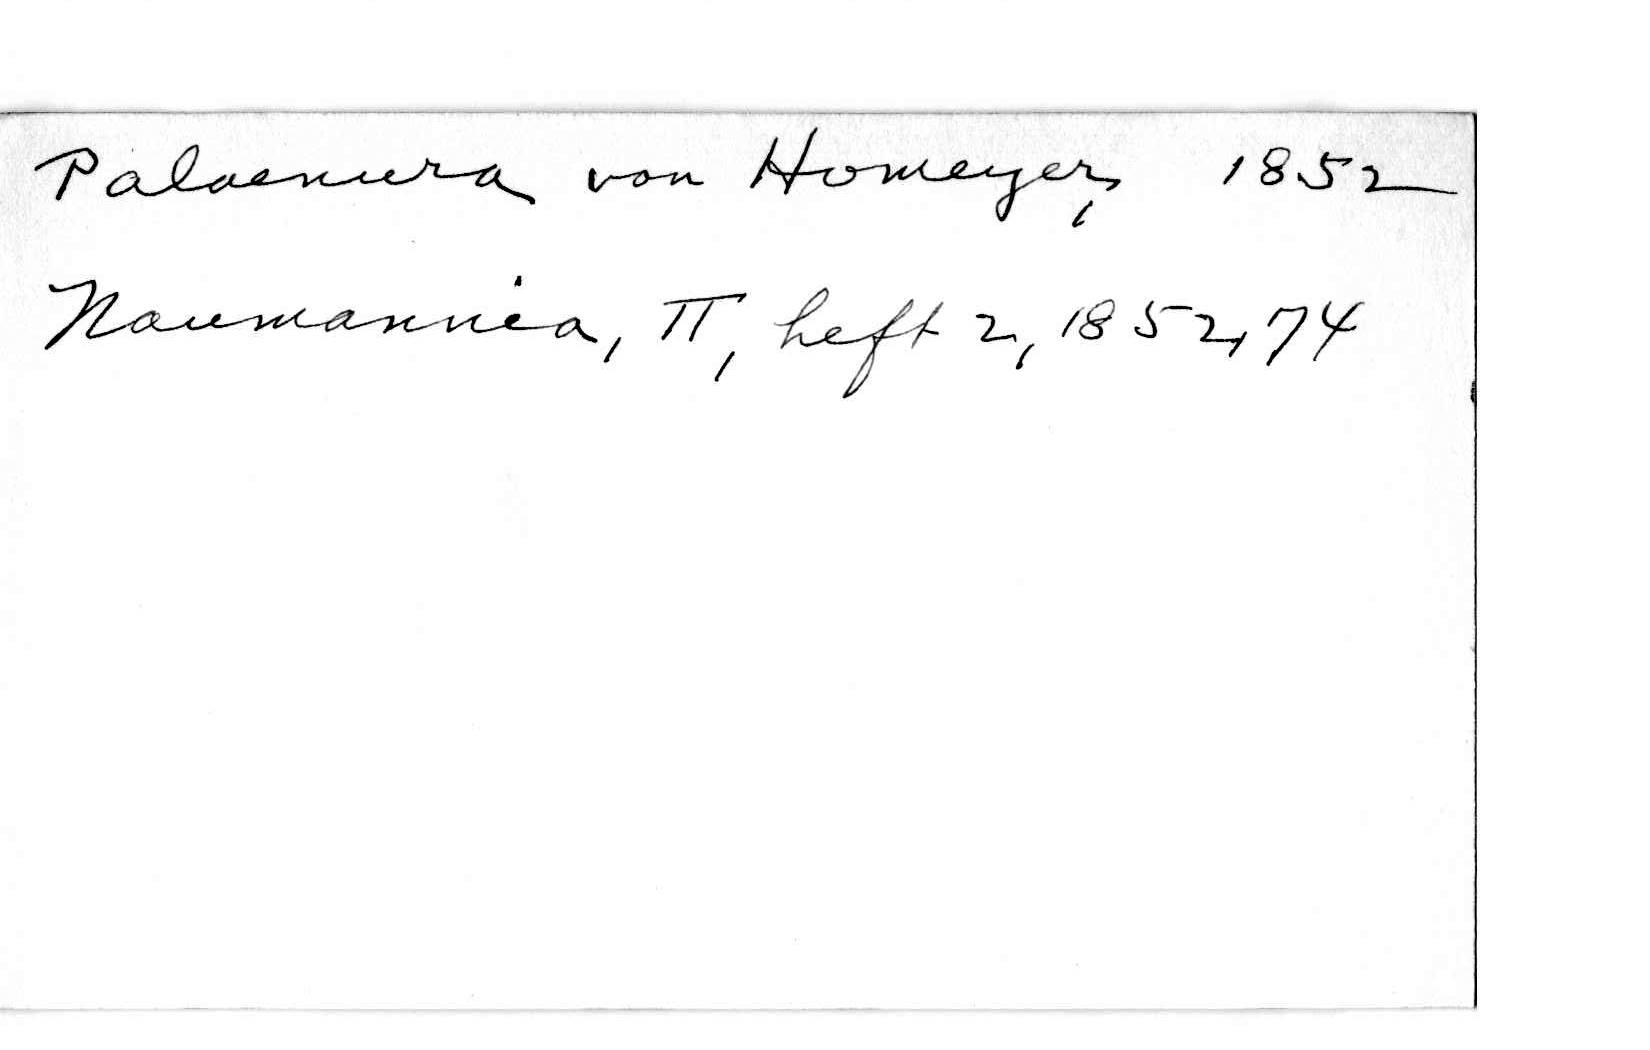 Palaenura von Homeyer, 1852
Naumannia, II, heft 2, 1852, 74